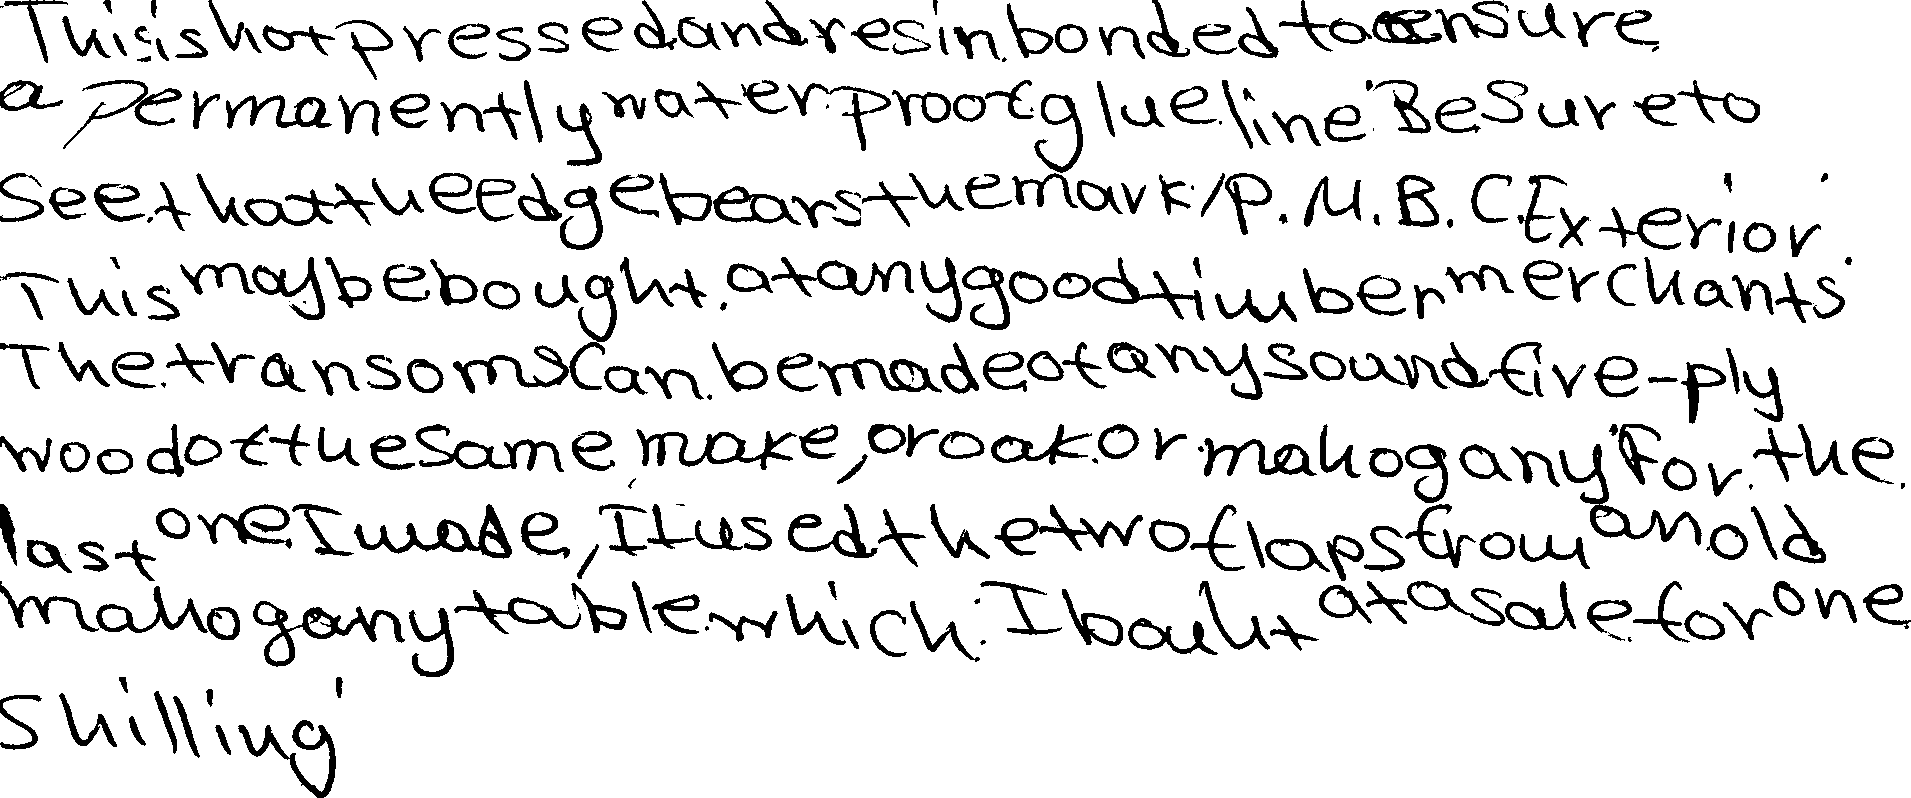 This is hot pressed and resin bonded to ensure
a permanently waterproof glue line. Be sure to
see that the edge bears the mark I.P.M.B.C. Exterior.
This may be bought at any good timber merchants.
The transoms can be made of any sound five-ply
wood of the same make, or oak or mahogany. For the
last one I made, I used the two flaps from an old
mahogany table which I bouht at a sale for one
shilling.